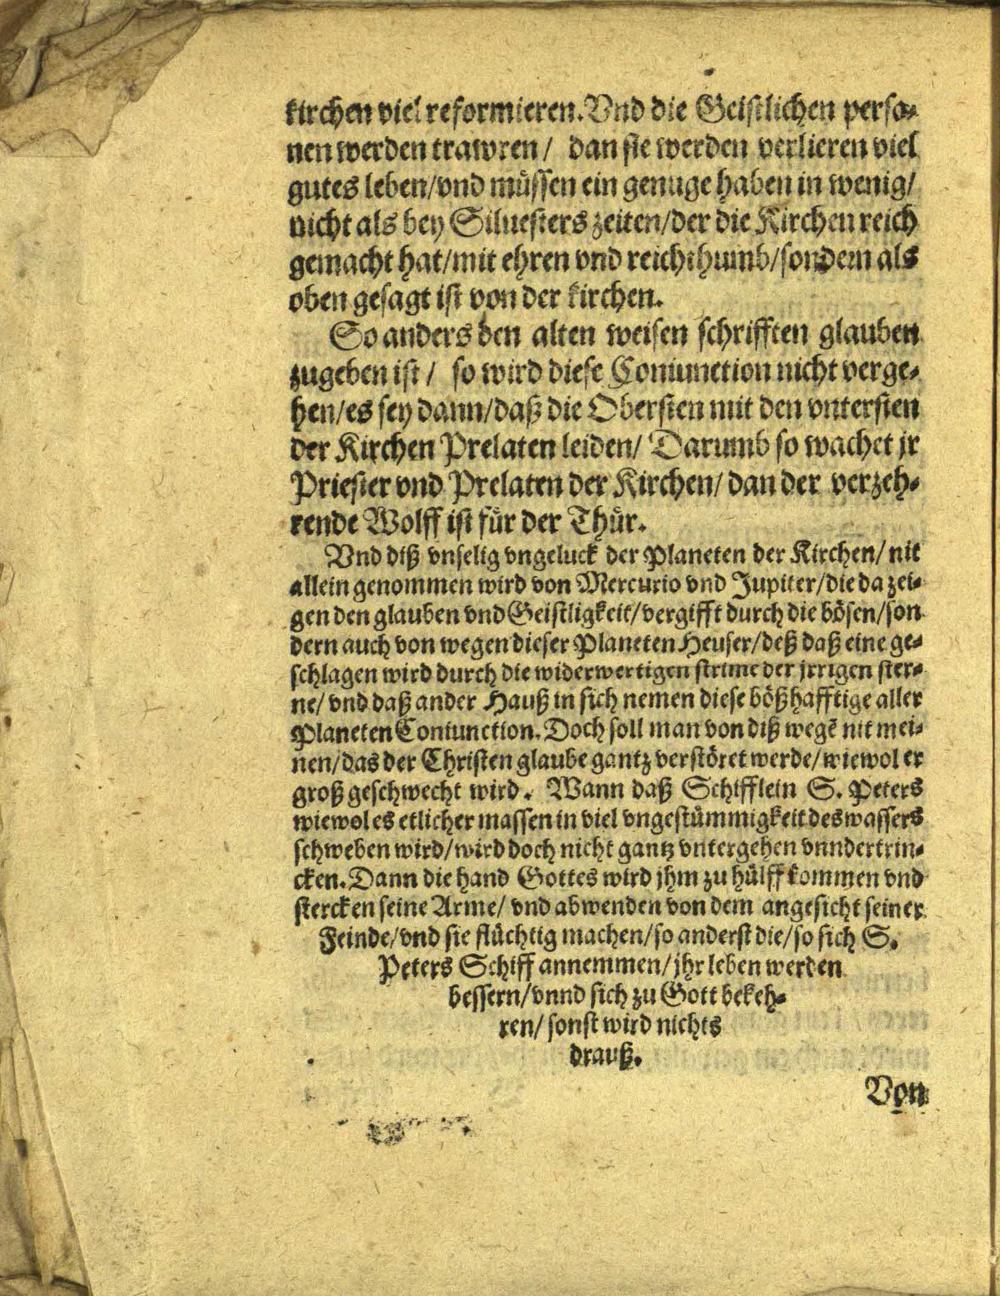 kirchen viel reformieren. Vnd die Geistlichen perso-
nen werden trawren / dan sie werden verlieren viel
gutes leben/vnd müssen ein genuge haben in wenig/
nicht als bey Siluesters zeiten/der die Kirchen reich
gemacht hat/mit ehren vnd reichthumb/sondern als
oben gesagt ist von der kirchen.
So anders den alten weisen schrifften glauben
zugeben ist / so wird diese Coniunction nicht verge-
hen/es sey dann/daß die Obersten mit den vntersten
der Kirchen Prelaten leiden/ Darumb so wachet jr
Priester vnd Prelaten der Kirchen/ dan der verzeh-
rende Wolff ist für der Thür.
Vnd diß vnselig vngeluck der Planeten der Kirchen/ nit
allein genommen wird von Mercurio vnd Jupiter/die da zei-
gen den glauben vnd Geistligkeit/vergifft durch die bösen/son
dern auch von wegen dieser Planeten Heuser/deß daß eine ge-
schlagen wird durch die widerwertigen strime der jrrigen ster-
ne/ vnd daß ander Hauß in sich nemen diese bößhafftige aller
Planeten Coniunction. Doch soll man von diß wegē nit mei-
nen/das der Christen glaube gantz verstöret werde/wiewol er
groß geschwecht wird. Wann daß Schifflein S. Peters
wiewol es etlicher massen in viel vngestümmigkeit des wassers
schweben wird/wird doch nicht gantz vntergehen vnnd ertrin-
cken. Dann die hand Gottes wird jhm zu hülff kommen vnd
stercken seine Arme/ vnd abwenden von dem angesicht seiner
Feinde/vnd sie flüchtig machen/so anderst die/so sich S.
Peters Schiff annemmen/jhr leben werden
bessern/vnnd sich zu Gott bekeh-
ren/ sonst wird nichts
drauß.
Von